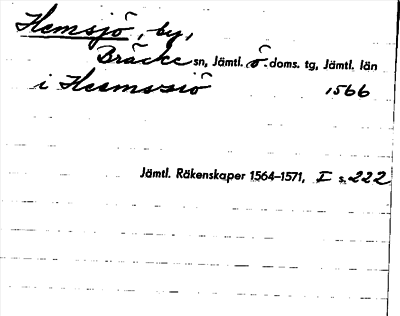 Hemsjö, by,
Bräcke sn, Jämtl. ö. doms. tg, Jämtl. län
i Hemssiö 1566
Jämtl. Räkenskaper 1564–1571, I s. 222